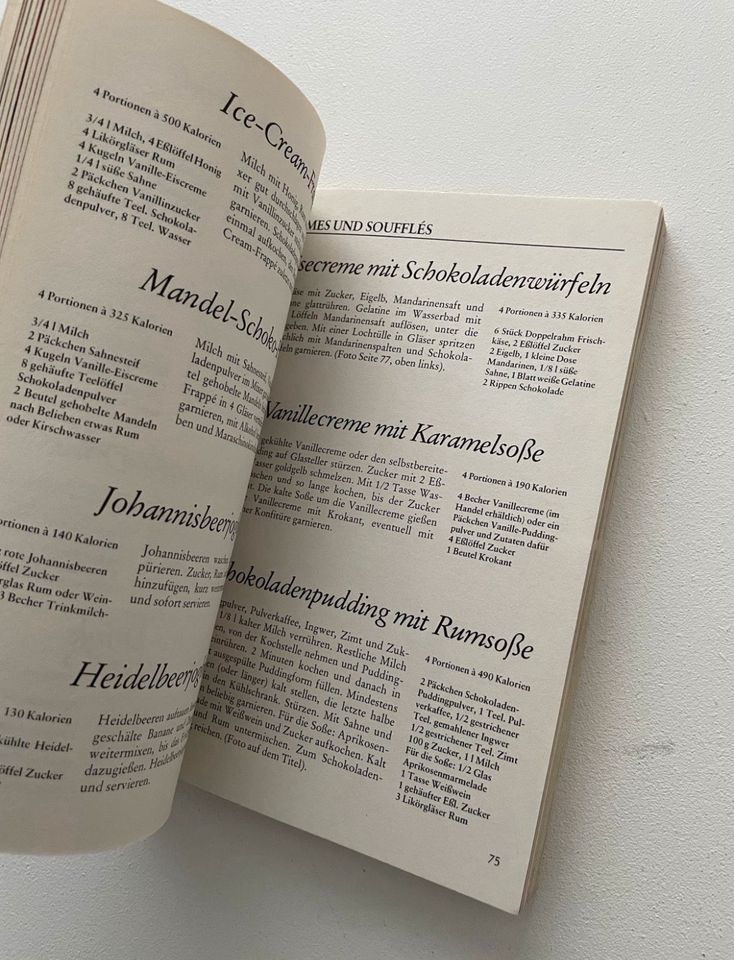 Ice-Cream-
4 Portionen à 500 Kalorien
3/4 l Milch, 4 Eßlöffel Honig
4 Likörgläser Rum
4 Kugeln Vanille-Eiscreme
1/4 l süße Sahne
2 Päckchen Vanillinzucker
8 gehäufte Teel. Schokola-
denpulver, 8 Teel. Wasser
Milch mit Honig,
xer gut
mit Vanillinzucker
garnieren.
einmal aufkochen,
Cream-Frappé
Mandel-Schoko-
4 Portionen à 325 Kalorien
3/4 l Milch
2 Päckchen Sahnesteif
4 Kugeln Vanille-Eiscreme
8 gehäufte Teelöffel
Schokoladenpulver
2 Beutel gehobelte Mandeln
nach Belieben etwas Rum
oder Kirschwasser
Milch mit
ladenpulver im
tel gehobelte
Frappé in 4 Gläser
garnieren, mit
ben und
Johannisbeerjog
ortionen à 140 Kalorien
rote Johannisbeeren
öffel Zucker
rglas Rum oder Wein-
3 Becher Trinkmilch-
Johannisbeeren
pürieren. Zucker,
hinzufügen, kurz
und sofort servieren.
Heidelbeerjog
130 Kalorien
kühlte Heidel-
öffel Zucker
Heidelbeeren
geschälte Banane
weitermixen, bis
dazugießen.
und servieren.
MES UND SOUFFLÉS
secreme mit Schokoladenwürfeln
äse mit Zucker, Eigelb, Mandarinensaft und
ine glattrühren. Gelatine im Wasserbad mit
Löffeln Mandarinensaft auflösen, unter die
geben. Mit einer Lochtülle in Gläser spritzen
chlich mit Mandarinenspalten und Schokola-
deln garnieren. (Foto Seite 77, oben links).
4 Portionen à 335 Kalorien
6 Stück Doppelrahm Frisch-
käse, 2 Eßlöffel Zucker
2 Eigelb, 1 kleine Dose
Mandarinen, 1/8 l süße
Sahne, 1 Blatt weiße Gelatine
2 Rippen Schokolade
Vanillecreme mit Karamelsoße
gekühlte Vanillecreme oder den selbstbereite-
ding auf Glasteller stürzen. Zucker mit 2 Eß-
asser goldgelb schmelzen. Mit 1/2 Tasse Was-
schen und so lange kochen, bis der Zucker
Die kalte Soße um die Vanillecreme gießen
Vanillecreme mit Krokant, eventuell mit
er Konfitüre garnieren.
4 Portionen à 190 Kalorien
4 Becher Vanillecreme (im
Handel erhältlich) oder ein
Päckchen Vanille-Pudding-
pulver und Zutaten dafür
4 Eßlöffel Zucker
1 Beutel Krokant
hokoladenpudding mit Rumsoße
gpulver, Pulverkaffee, Ingwer, Zimt und Zuk-
1/8 l kalter Milch verrühren. Restliche Milch
en, von der Kochstelle nehmen und Pudding-
inrühren. 2 Minuten kochen und danach in
ausgespülte Puddingform füllen. Mindestens
(oder länger) kalt stellen, die letzte halbe
den Kühlschrank. Stürzen. Mit Sahne und
beliebig garnieren. Für die Soße: Aprikosen-
ade mit Weißwein und Zucker aufkochen. Kalt
und Rum untermischen. Zum Schokoladen-
reichen. (Foto auf dem Titel).
4 Portionen à 490 Kalorien
2 Päckchen Schokoladen-
Puddingpulver, 1 Teel. Pul-
verkaffee, 1/2 gestrichener
Teel. gemahlener Ingwer
1/2 gestrichener Teel. Zimt
100 g Zucker, 1 l Milch
Für die Soße: 1/2 Glas
Aprikosenmarmelade
1 Tasse Weißwein
1 gehäufter Eßl. Zucker
3 Likörgläser Rum
75